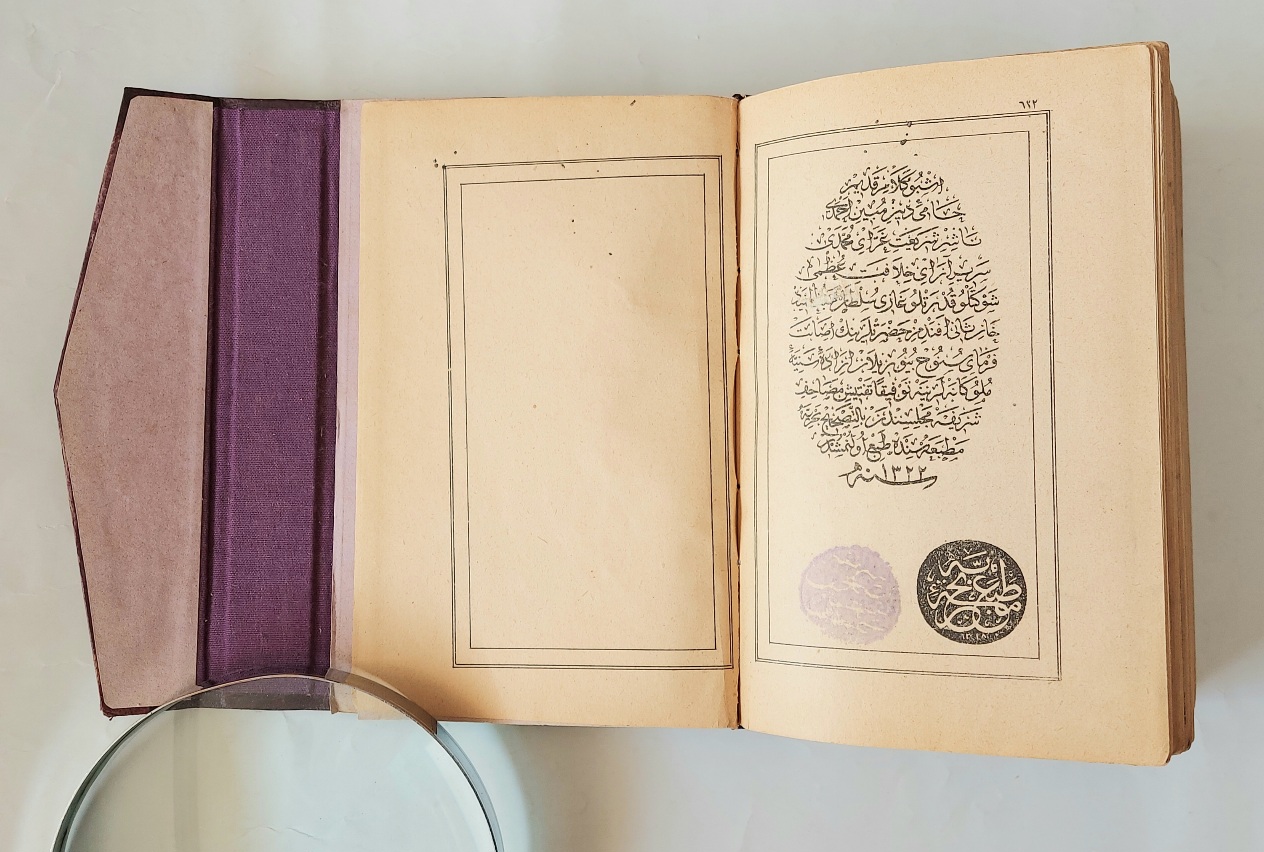 ٦٢٢
اشبو كلام قدیم
حامئ دین مبین احمدی
ناشر شریعت غرای محمدی
سریر آرای خلافت عظمی
شوكتلو قدرتلو غازی سلطان
خان ثانی افندمز حضرتلرینك اصابت
فرمای سنوح بیوریلان اراده سنیهٔ
ملوكانه لرینه توفیقا تفتیش مصاحف
شریفه مجلسندن بالتصحیح بحریه
مطبعه سنده طبع اولنمشدر
سنه ١٣٢٢